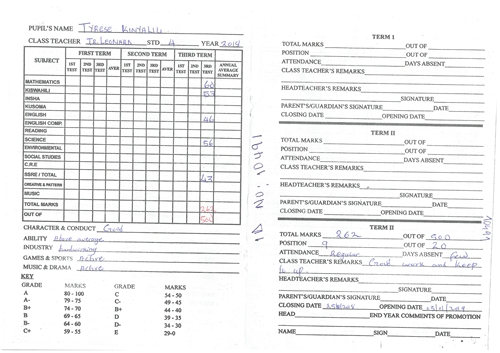 PUPIL'S NAME Tyrese Kinyalili
CLASS TEACHER Tr. Leonard STD 4 YEAR 2018
SUBJECT FIRST TERM SECOND TERM THIRD TERM ANNUAL AVERAGE SUMMARY
1ST TEST 2ND TEST 3RD TEST AVER 1ST TEST 2ND TEST 3RD TEST AVER 1ST TEST 2ND TEST 3RD TEST
MATHEMATICS 60
KISWAHILI 53
INSHA
KUSOMA
ENGLISH
ENGLISH COMP. 46
READING
SCIENCE 56
ENVIRONMENTAL
SOCIAL STUDIES
C.R.E
SSRE / TOTAL 43
CREATIVE & PATTERN
MUSIC
TOTAL MARKS 262
OUT OF 500
CHARACTER & CONDUCT Good
ABILITY Above average
INDUSTRY hardworking
GAMES & SPORTS Active
MUSIC & DRAMA Active
KEY
GRADE MARKS GRADE MARKS
A 80 - 100 C 54 - 50
A- 79 - 75 C- 49 - 45
B+ 74 - 70 B+ 44 - 40
B 69 - 65 D 39 - 35
B- 64 - 60 D- 34 - 30
C+ 59 - 55 E 29-0
ID NO: 10491
TERM 1
TOTAL MARKS OUT OF
POSITION OUT OF
ATTENDANCE DAYS ABSENT
CLASS TEACHER'S REMARKS
HEADTEACHER'S REMARKS
SIGNATURE
PARENT'S/GUARDIAN'S SIGNATURE DATE
CLOSING DATE OPENING DATE
TERM II
TOTAL MARKS OUT OF
POSITION OUT OF
ATTENDANCE DAYS ABSENT
CLASS TEACHER'S REMARKS
HEADTEACHER'S REMARKS
SIGNATURE
PARENT'S/GUARDIAN'S SIGNATURE DATE
CLOSING DATE OPENING DATE
10491
TERM II
TOTAL MARKS 262 OUT OF 500
POSITION 9 OUT OF 20
ATTENDANCE Regular DAYS ABSENT few
CLASS TEACHER'S REMARKS Good work and keep
it up.
HEADTEACHER'S REMARKS
SIGNATURE
PARENT'S/GUARDIAN'S SIGNATURE DATE
CLOSING DATE OPENING DATE
HEAD END YEAR COMMENTS OF PROMOTION
NAME SIGN DATE